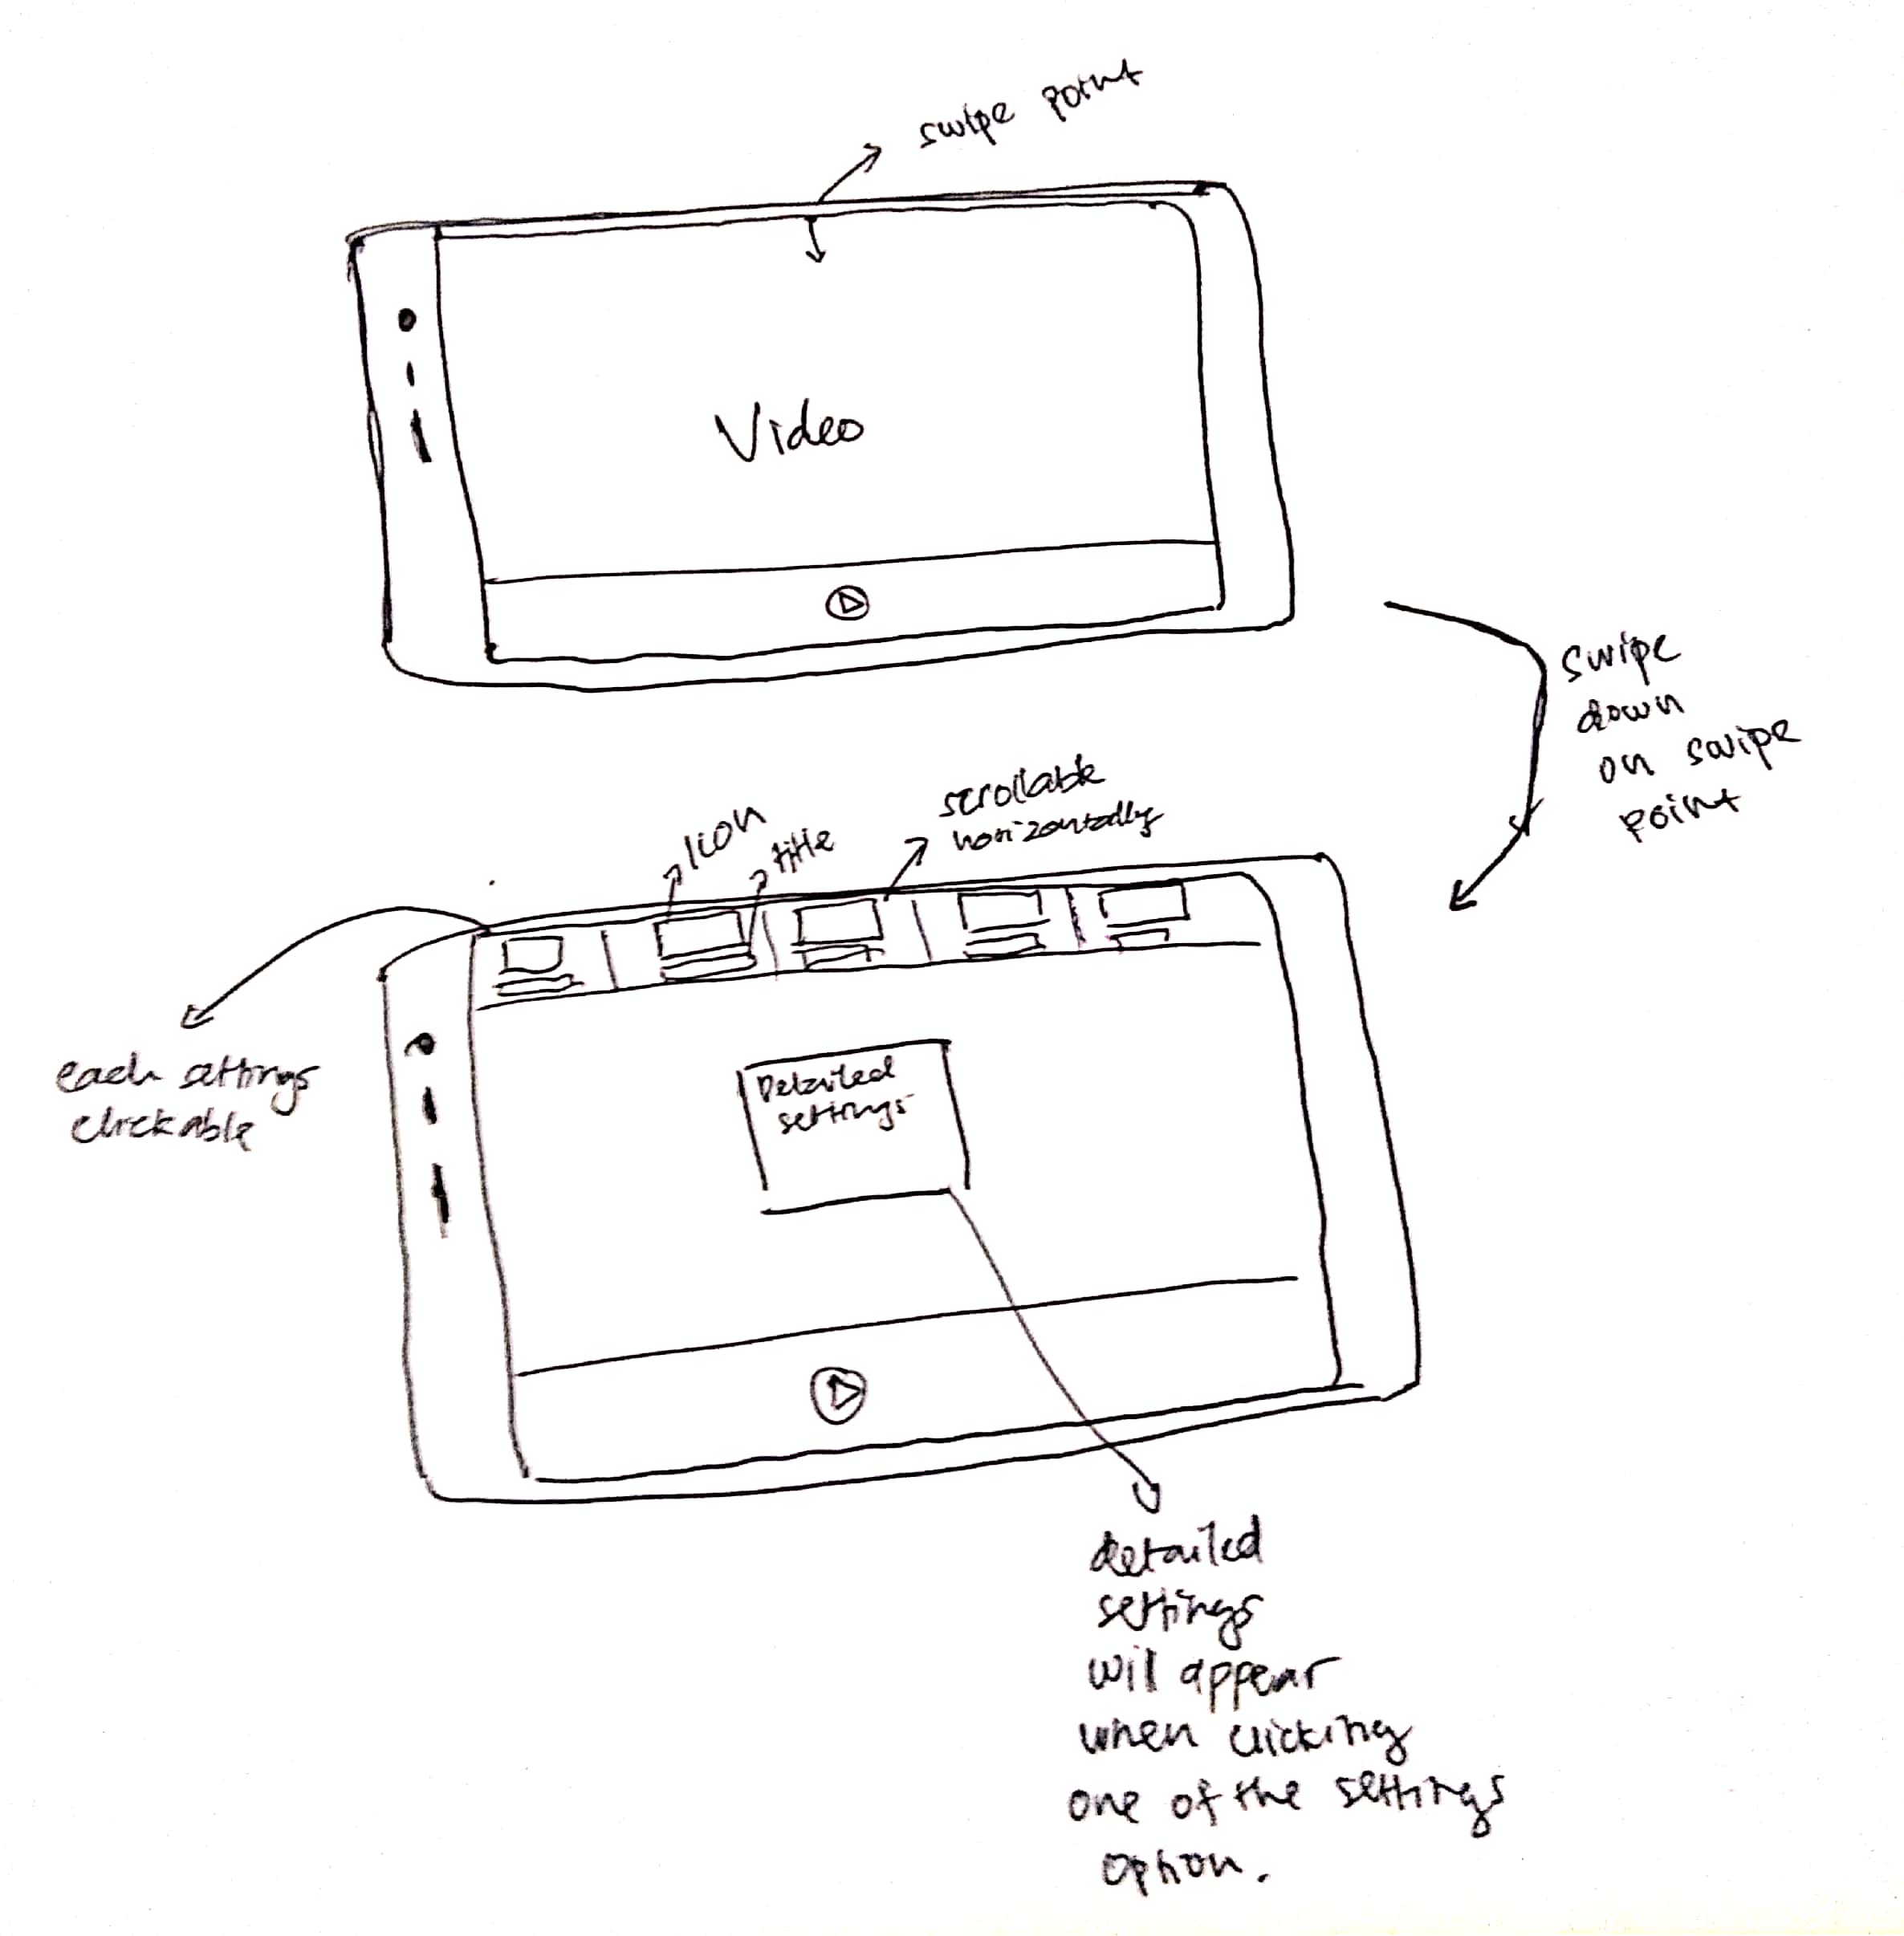 swipe point
Video
swipe
down
on swipe
point
Icon
title
scrollable
horizontally
each settings
clickable
Detailed
settings
detailed
settings
wil appear
when clicking
one of the settings
option.